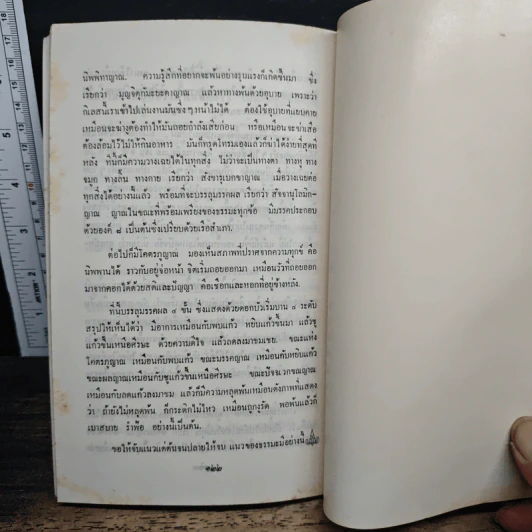 นิพพิทาญาณ. ความรู้สึกที่อยากจะพ้นอย่างรุนแรงก็เกิดขึ้นมา ซึ่ง
เรียกว่า มุญจิตุกัมยะตาญาณ แล้วหาทางพ้นด้วยอุบาย เพราะว่า
กิเลสนั้นเราเข้าไปเล่นงานมันซึ่ง ๆ หน้าไม่ได้ ต้องใช้อุบายที่แยบคาย
เหมือนจะฆ่างูต้องทำให้มันถอยกำลังเสียก่อน หรือเหมือนจะฆ่าเสือ
ต้องล้อมไว้ไม่ให้กินอาหาร มันก็ทรุดโทรมเองแล้วก็ฆ่าได้ง่ายที่สุดที
หลัง ทีนี้ก็มีความวางเฉยได้ในทุกสิ่ง ไม่ว่าจะเป็นทางตา ทางหู ทาง
จมูก ทางลิ้น ทางกาย เรียกว่า สังขารุเบกขาญาณ เมื่อวางเฉยต่อ
ทุกสิ่งได้อย่างนี้แล้ว พร้อมที่จะบรรลุมรรคผล เรียกว่า สัจจานุโลมิก-
ญาณ ญาณในขณะที่พร้อมเพรียงของธรรมะทุกข้อ มีมรรคประกอบ
ด้วยองค์ ๘ เป็นต้นซึ่งเปรียบด้วยเรือสำเภา.
ต่อไปก็มีโคตรภูญาณ มองเห็นสภาพที่ปราศจากความทุกข์ คือ
นิพพานได้ ราวกับอยู่จ่อหน้า จิตเริ่มถอยออกมา เหมือนวัวที่ถอยออก
มาจากคอกได้ด้วยสติและปัญญา คือเชือกและหอกที่อยู่ข้างหลัง.
ที่นี้บรรลุมรรคผล ๔ ชั้น ซึ่งแสดงด้วยดอกบัวเริ่มบาน ๔ ระดับ
สรุปให้เห็นได้ว่า มีอาการเหมือนกับพบแก้ว หยิบแก้วขึ้นมา แล้วชู
แก้วขึ้นเหนือศีรษะ ด้วยความดีใจ แล้วลดลงมาชมเชย. ขณะแห่ง
โคตรภูญาณ เหมือนกับพบแก้ว ขณะมรรคญาณ เหมือนกับหยิบแก้ว
ขณะผลญาณเหมือนกับชูแก้วขึ้นเหนือศีรษะ ขณะปัจจเวกขณญาณ
เหมือนกับลดแก้วลงมาชม แล้วก็มีความหลุดพ้นเหมือนดังภาพที่แสดง
ว่า ถ้ายังไม่หลุดพ้น ก็กระดิกไม่ไหว เหมือนถูกงูรัด พอพ้นแล้วก็
เบาสบาย ร่าฟ้อ อย่างนี้เป็นต้น.
ขอให้จับแนวแต่ต้นจนปลายให้จบ แนวของธรรมะมีอย่างนี้
๑๒๒